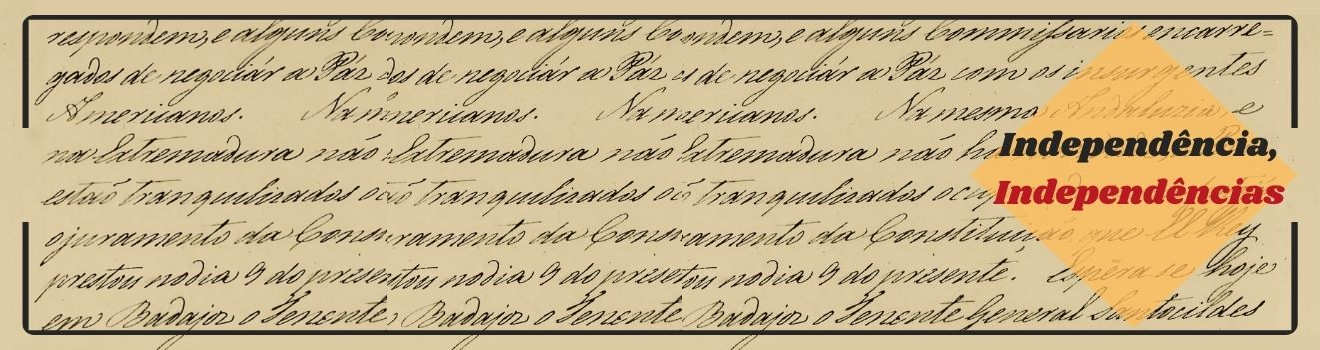 respondem, e alguns Co ondem, e alguns Co ondem, e alguns Commissarios encarre=
gados de negociár a Paz dos de negociár a Paz s de negociár a Paz com os insurgentes
Americanos. Na mericanos. Na mericanos. Na mesma Andaluzia, e
na Estremadura não Estremadura não Estremadura não
estaõ tranquilisados tranquilisados tranquilisados
o juramento da Cons ramento da Cons amento da Constituição, que El Rey
prestou no dia 9 do presen tou no dia 9 do presen tou no dia 9 do presente. Espera se hoje
em Badajoz o Tenente, Badajoz o Tenente Badajoz o Tenente General Santocildes
Independência,
Independências